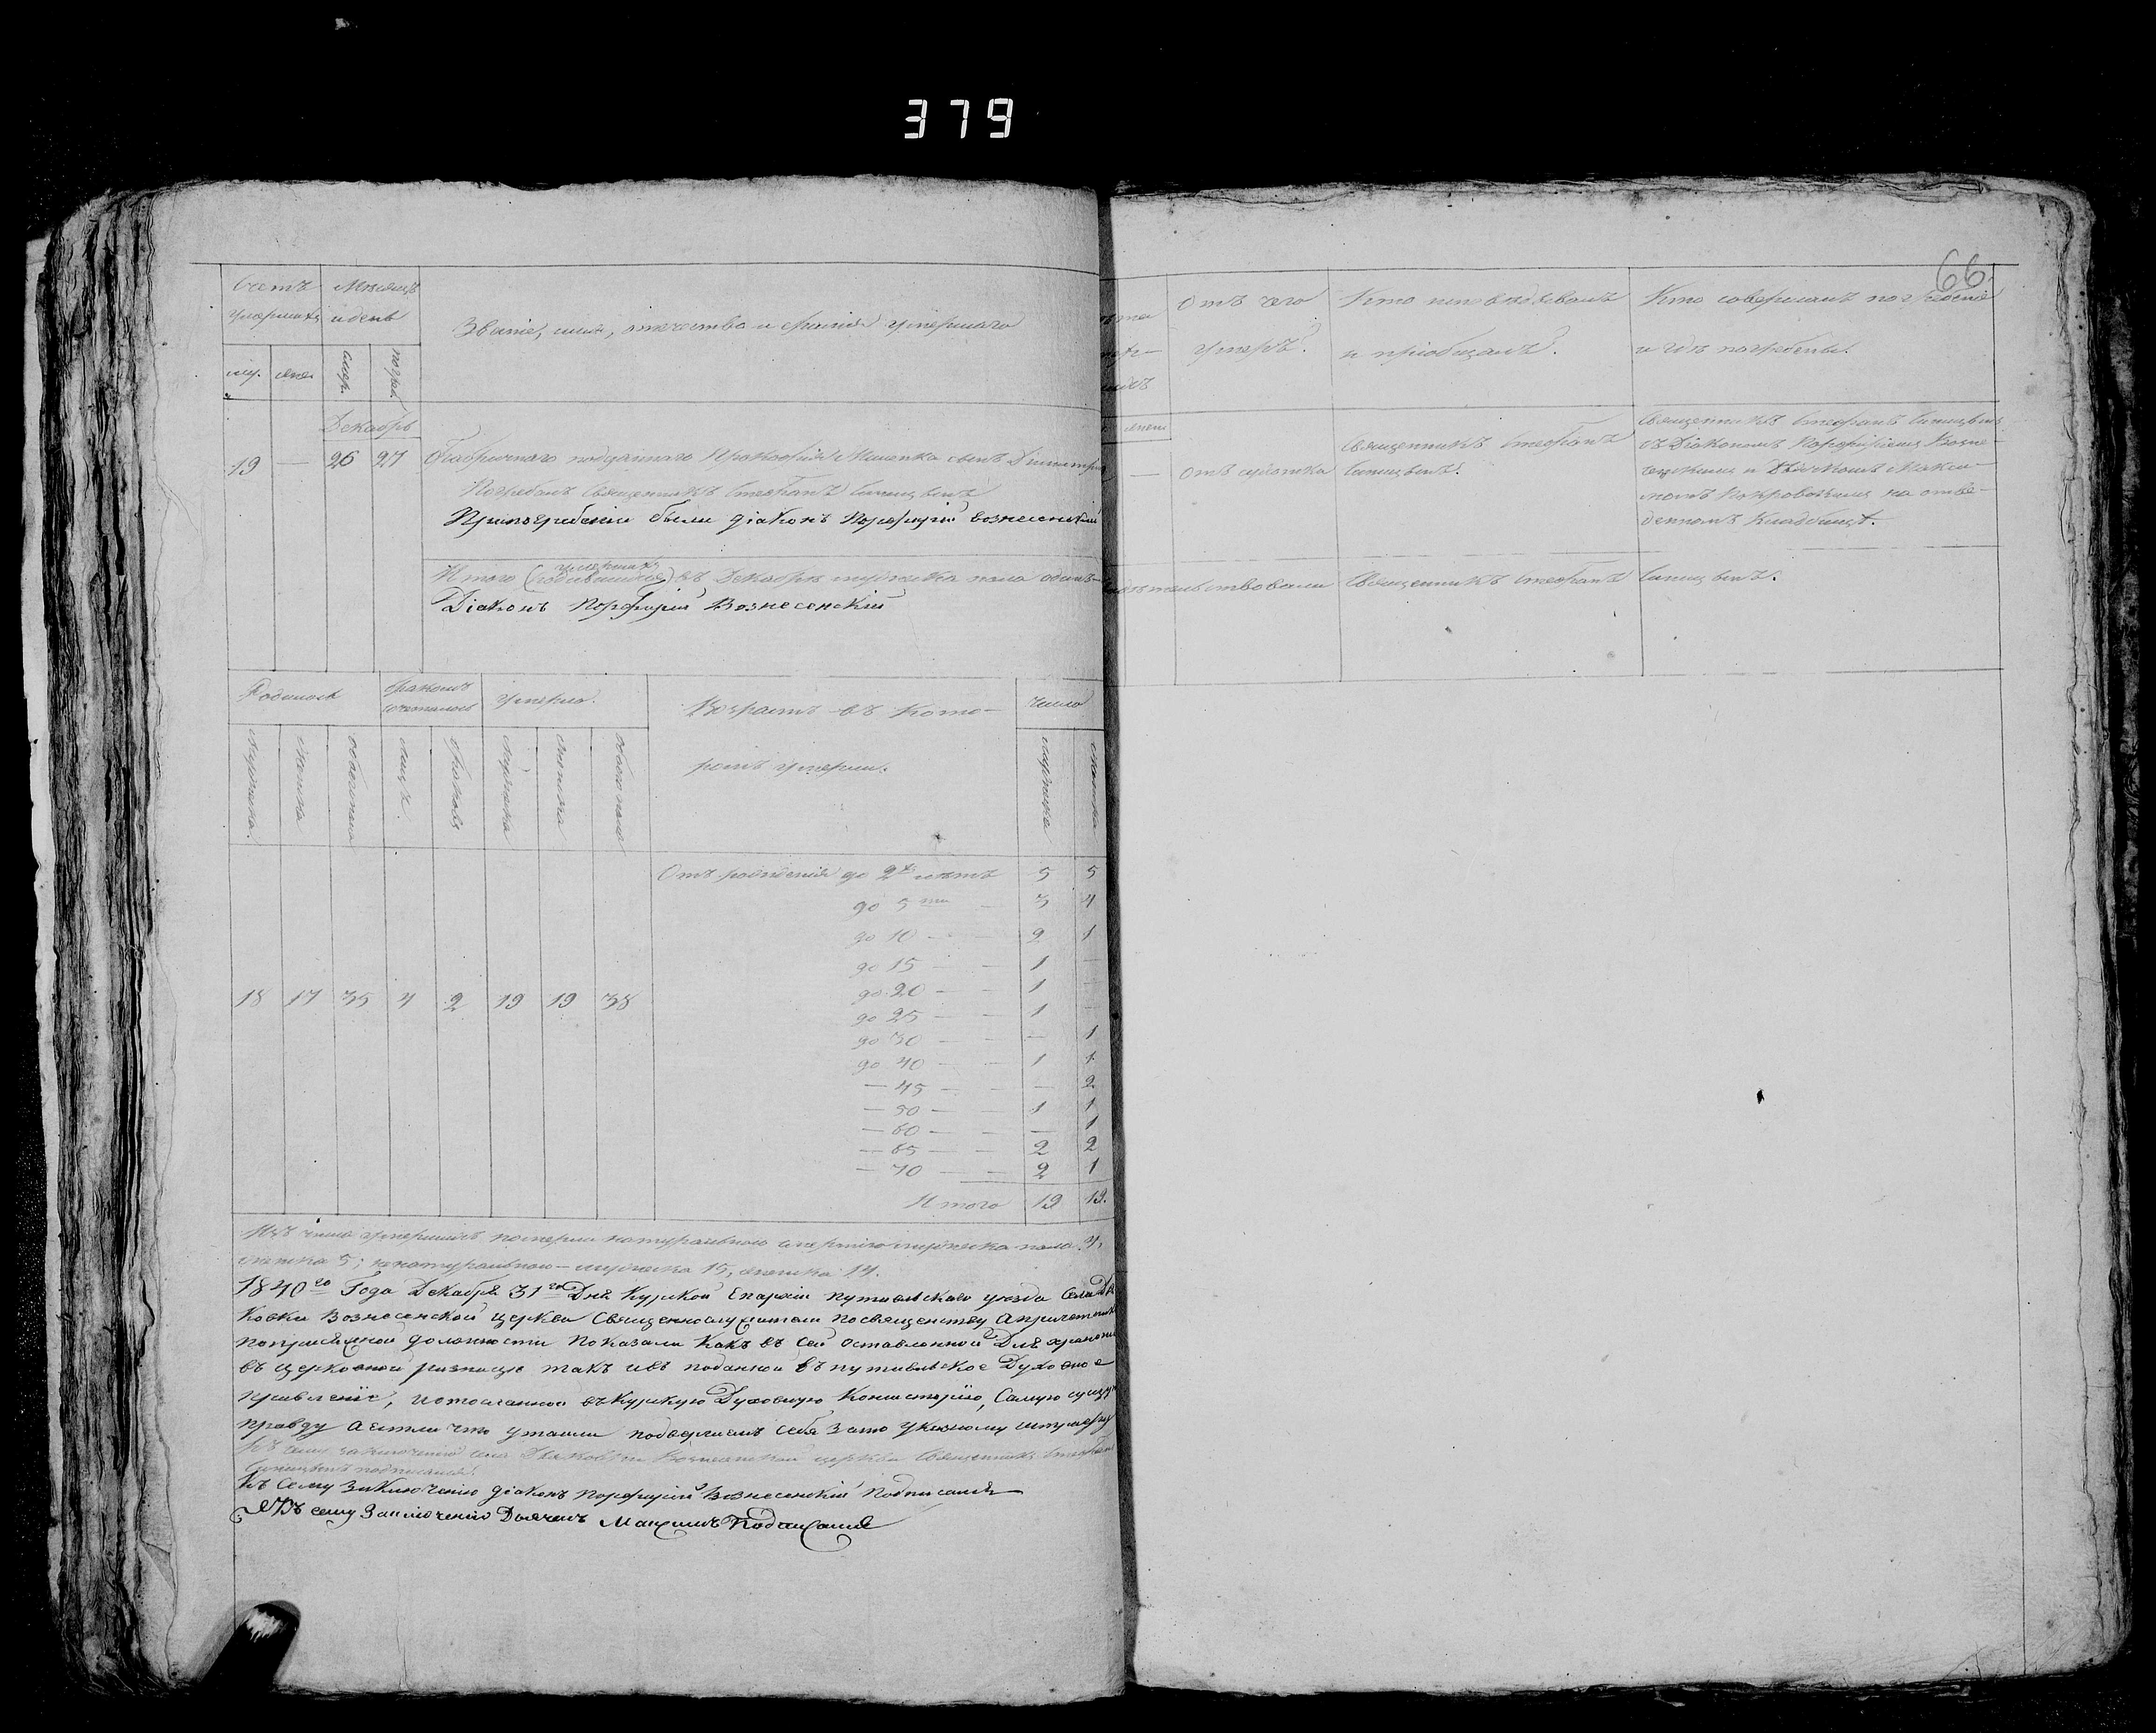 379
66.
Счетъ умершихъ
Мѣсяцъ и день
Званіе, имя, отечество и фамилія умершаго
муж. жен. смер. погреб.
Отъ чего умеръ.
Кто исповѣдывалъ и пріобщалъ.
Кто совершалъ погребеніе и гдѣ погребены.
Декабрь
19 — 26 27 Фабричнаго Прокофія сынъ Димитрій
Погребалъ Священникъ Стефанъ
При погребеніи были діаконъ Порфирій Вознесенскій
— Отъ
Священникъ Стефанъ
Священникъ Стефанъ
съ Діакономъ Порфиріемъ Вознесенскимъ и Дьячкомъ Максимомъ на отведенномъ кладбищѣ.
Итого (умершихъ) въ Декабрѣ мужеска пола одинъ
свидѣтельствовали Священникъ Стефанъ
Діаконъ Порфирій Вознесенскій
Родилось
бракомъ сочеталось
Умерло.
Возрастъ въ которомъ умерли.
число
мужеска. женска обоего пола
мужеска женска обоего пола
мужеска женска
Отъ рожденія до 2х лѣтъ 5 5
до 5ти — 3 4
до 10 — — 2 1
до 15 — — 1 —
18 17 35 4 2 19 19 38
до 20 — — 1 —
до 25 — — 1 —
до 30 — — — 1
до 40 — — 1 1
— 45 — — — 2
— 50 — — 1 1
— 60 — — — 1
— 65 — — 2 2
— 70 — — 2 1
Итого 19 19.
Изъ числа умершихъ померли натуральною смертію мужеска пола 4,
женска 5; ненатуральною — мужеска 15, женска 14.
1840го Года Декабря 31го Дня Курской Епархіи Путивльскаго уезда Села
Вознесенской церкви Священнослужители по священству а причетники
по присяжной должности показали какъ въ сей оставленной Для храненія
въ церковной ризницѣ такъ и въ поданной въ путивльское Духовное
правленіе, и отосланной въ Курскую Духовную Консисторію, Самую сущую
правду а естли что утаили подвергаемъ себя за то указному штрафу
Къ сему заключенію села Вознесенской церкви Священникъ Стефанъ
подписался.
Къ сему заключенію діаконъ Порфирій Вознесенскій подписался
Къ сему Заключенію Дьячекъ Максимъ Подписался